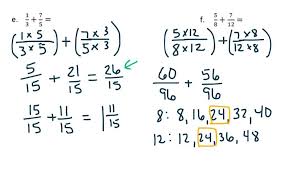 e. 1/3 + 7/5 =
(1 x 5 / 3 x 5) + (7 x 3 / 5 x 3)
5/15 + 21/15 = 26/15
15/15 + 11/15 = 1 11/15
f. 5/8 + 7/12 =
(5 x 12 / 8 x 12) + (7 x 8 / 12 x 8)
60/96 + 56/96
8: 8, 16, 24, 32, 40
12: 12, 24, 36, 48